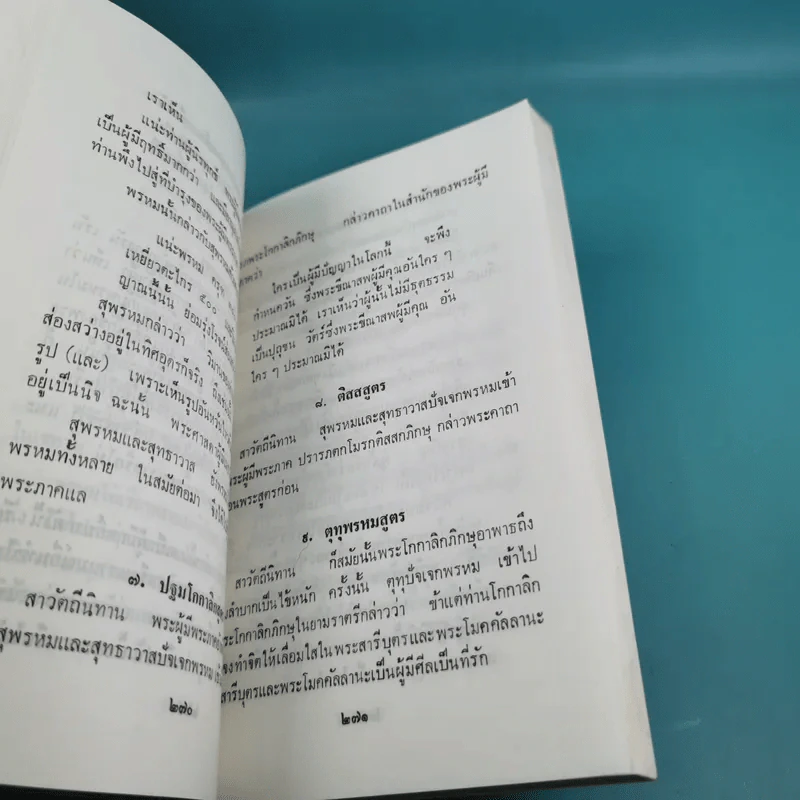 เราเห็น
แน่ะท่านผู้นิรทุกข์
เป็นผู้มีฤทธิ์มากกว่า
ท่านพึงไปสู่ที่บำรุงของพระผู้มี
พรหมนั้นกล่าวกับสุพรหม
แน่ะพรหม ครุฑ
เหยี่ยวตะไกร ๕๐๐
ญาณนั้นนั้น ย่อมรุ่งโรจน์
สุพรหมกล่าวว่า วิมาน
ส่องสว่างอยู่ในทิศอุดรก็จริง ถึง
รูป (และ) เพราะเห็นรูปอัน
อยู่เป็นนิจ ฉะนั้น พระศาสดาผู้
สุพรหมและสุทธาวาส
พรหมทั้งหลาย ในสมัยต่อมา จึงได้
พระภาคแล
๗. ปฐมโกกาลิก
สาวัตถีนิทาน พระผู้มีพระภาค
สุพรหมและสุทธาวาสปัจเจกพรหม
๒๗๐
พระโกกาลิกภิกษุ กล่าวคาถาในสำนักของพระผู้มี
ภาคว่า
ใครเป็นผู้มีปัญญาในโลกนี้ จะพึง
กำหนดวัน ซึ่งพระขีณาสพผู้มีคุณอันใคร ๆ
ประมาณมิได้ เราเห็นว่าผู้นั้นไม่มีธุตธรรม
เป็นปุถุชน วัดร์ซึ่งพระขีณาสพผู้มีคุณ อัน
ใคร ๆ ประมาณมิได้
๘. ติสสสูตร
สาวัตถีนิทาน สุพรหมและสุทธาวาสปัจเจกพรหมเข้า
พระผู้มีพระภาค ปรารภตกโมรกติสสกภิกษุ กล่าวพระคาถา
อนพระสูตรก่อน
๙. ตุทุพรหมสูตร
สาวัตถีนิทาน ก็สมัยนั้นพระโกกาลิกภิกษุอาพาธถึง
ลำบากเป็นไข้หนัก ครั้งนั้น ตุทุปัจเจกพรหม เข้าไป
ระโกกาลิกภิกษุในยามราตรีกล่าวว่า ข้าแต่ท่านโกกาลิก
จงทำจิตให้เลื่อมใสในพระสารีบุตรและพระโมคคัลลานะ
สารีบุตรและพระโมคคัลลานะเป็นผู้มีศีลเป็นที่รัก
๒๗๑